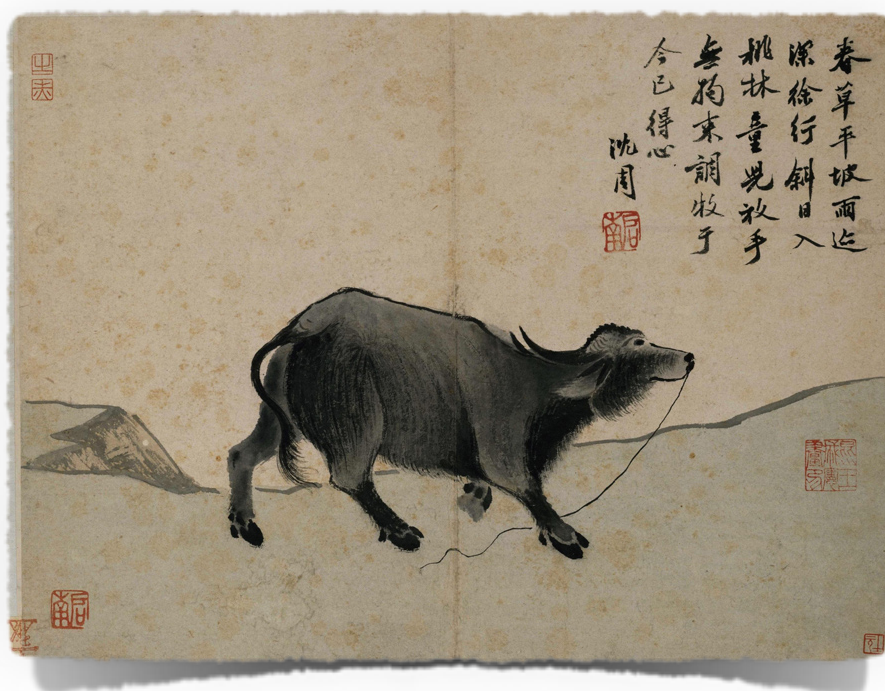 春草平坡雨迹
深徐行斜日入
桃林童児放手
無拘束調牧于
今已得心
沈周
啟南
啟南